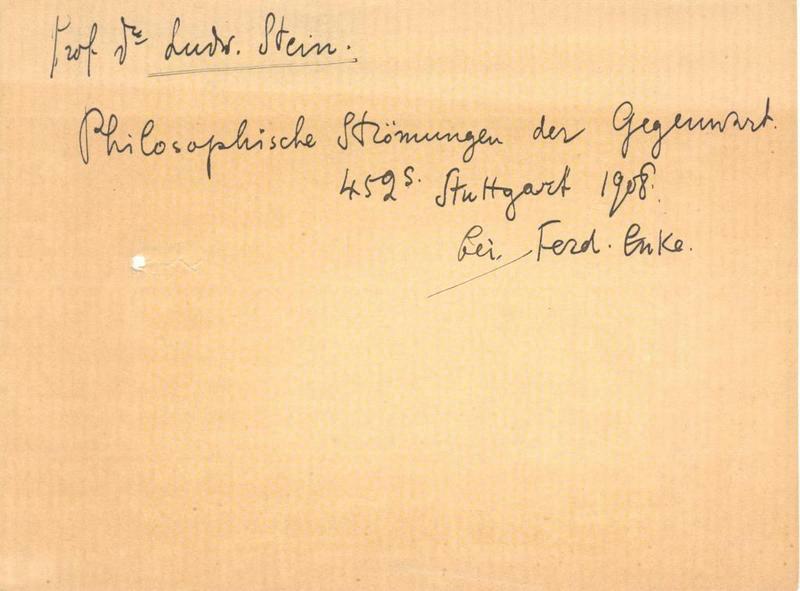 Prof Dr Ludw. Stein.
Philosophische Strömungen der Gegenwart.
452 S. Stuttgart 1908.
bei Ferd. Enke.